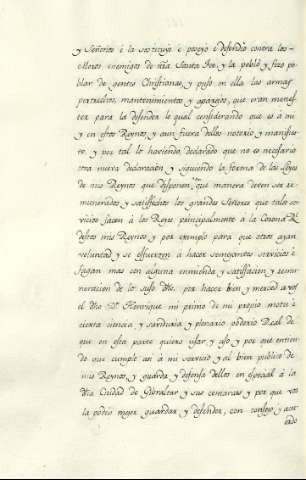 y Señorios è la sostituyo è proveyo è defendio contra los
Moros enemigos de nřa Santa Fee, y la poblò y fizo po-
blar de gentes Christianas, y puso en ella las armas
pertrechos, mantenimientos y aparejos, que eran menes-
ter para la defender lo qual considerando que es à mi
y en estos Reynos, y aun fuera dellos notorio y manifies-
to, y por tal lo haviendo, declarado que no es necesario
otra nueva declaracion y siguiendo la forma de las Leyes
de mis Reynos que disponen, que manera deven ser re-
munerados y satisfechos los grandes Señores que tales ser-
vicios facen à los Reyes, principalmente à la Corona Rl.
destos mis Reynos, y por exemplo para que otros ayan
voluntad y se esfuerzen à hacer semejantes servicios è
hagan mas con alguna enmienda y satisfaccion y remu-
neracion de lo suso dho. por hacer bien y merced a vos
el dho Dn. Henrique mi primo de mi propio motu è
cierta ciencia y savidurìa y plenario poderio Real de
que en esta parte quiero usar, y uso y por que entien-
do que cumple asi à mi servicio y al bien publico de
mis Reynos y guarda y defensa dellos en especial à la
dha Ciudad de Gibraltar y sus comarcas y por que vos
la podeis mejor guardar y defender, con consejo y acu-
erdo